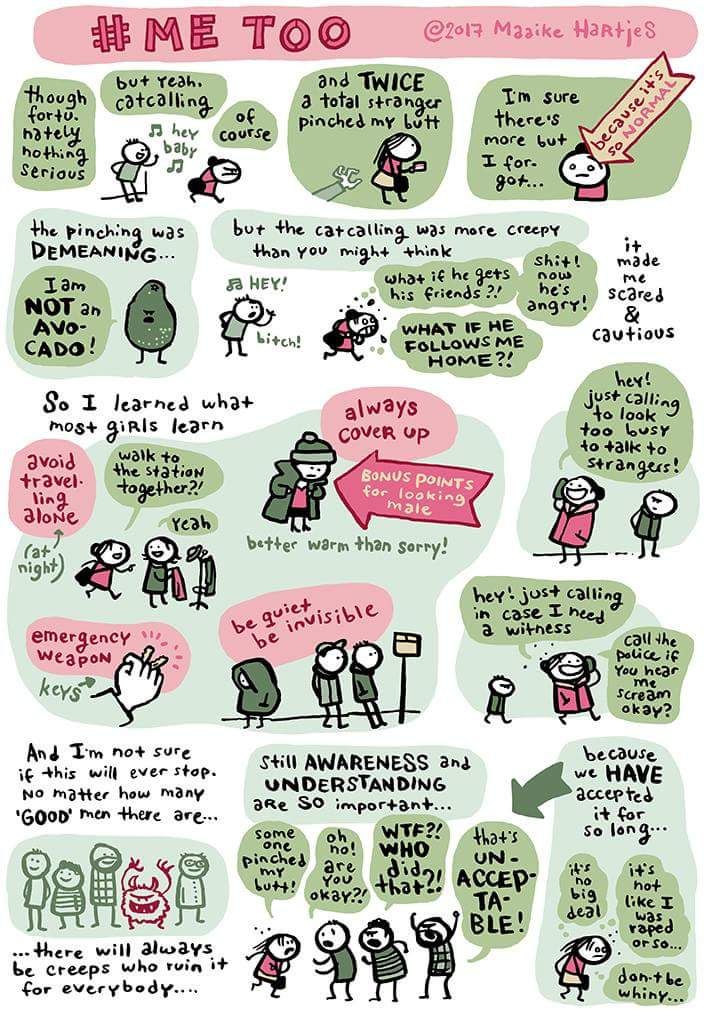 #ME TOO
©2017 Maaike HaRtjeS
though
fortu.
nately
nothing
serious
but yeah.
catcalling
hey
baby
of
course
and TWICE
a total stranger
pinched my butt
I'm sure
there's
more but
I for-
got...
because it's
so NORMAL
the pinching was
DEMEANING...
I am
NOT an
AVO-
CADO!
but the catcalling was more creepy
than you might think
HEY!
bitch!
what if he gets
his friends?!
shit!
now
he's
angry!
WHAT IF HE
FOLLOWS ME
HOME?!
it
made
me
scared
&
cautious
So I learned what
most giRls learn
avoid
travel-
ling
alone
(at
night)
walk to
the station
together?!
Yeah
always
coveR up
BONUS POINTS
for looking
male
better warm than sorry!
hey!
just calling
to look
too busy
to talk to
strangers!
emergency
weapon
keys
be quiet
be invisible
hey! just calling
in case I need
a witness
call the
police if
you hear
me
scream
okay?
And I'm not sure
if this will ever stop.
No matter how many
'GOOD' men there are...
...there will always
be creeps who ruin it
for everybody....
still AWARENESS and
UNDERSTANDING
aRe SO important...
some
one
pinched
my
butt!
oh
no!
are
you
okay?!
WTF?!
WHO
did
that?!
that's
UN-
ACCEP-
TA-
BLE!
because
we HAVE
accepted
it for
so long...
it's
no
big
deal
it's
not
like I
was
raped
or so...
don't be
whiny...